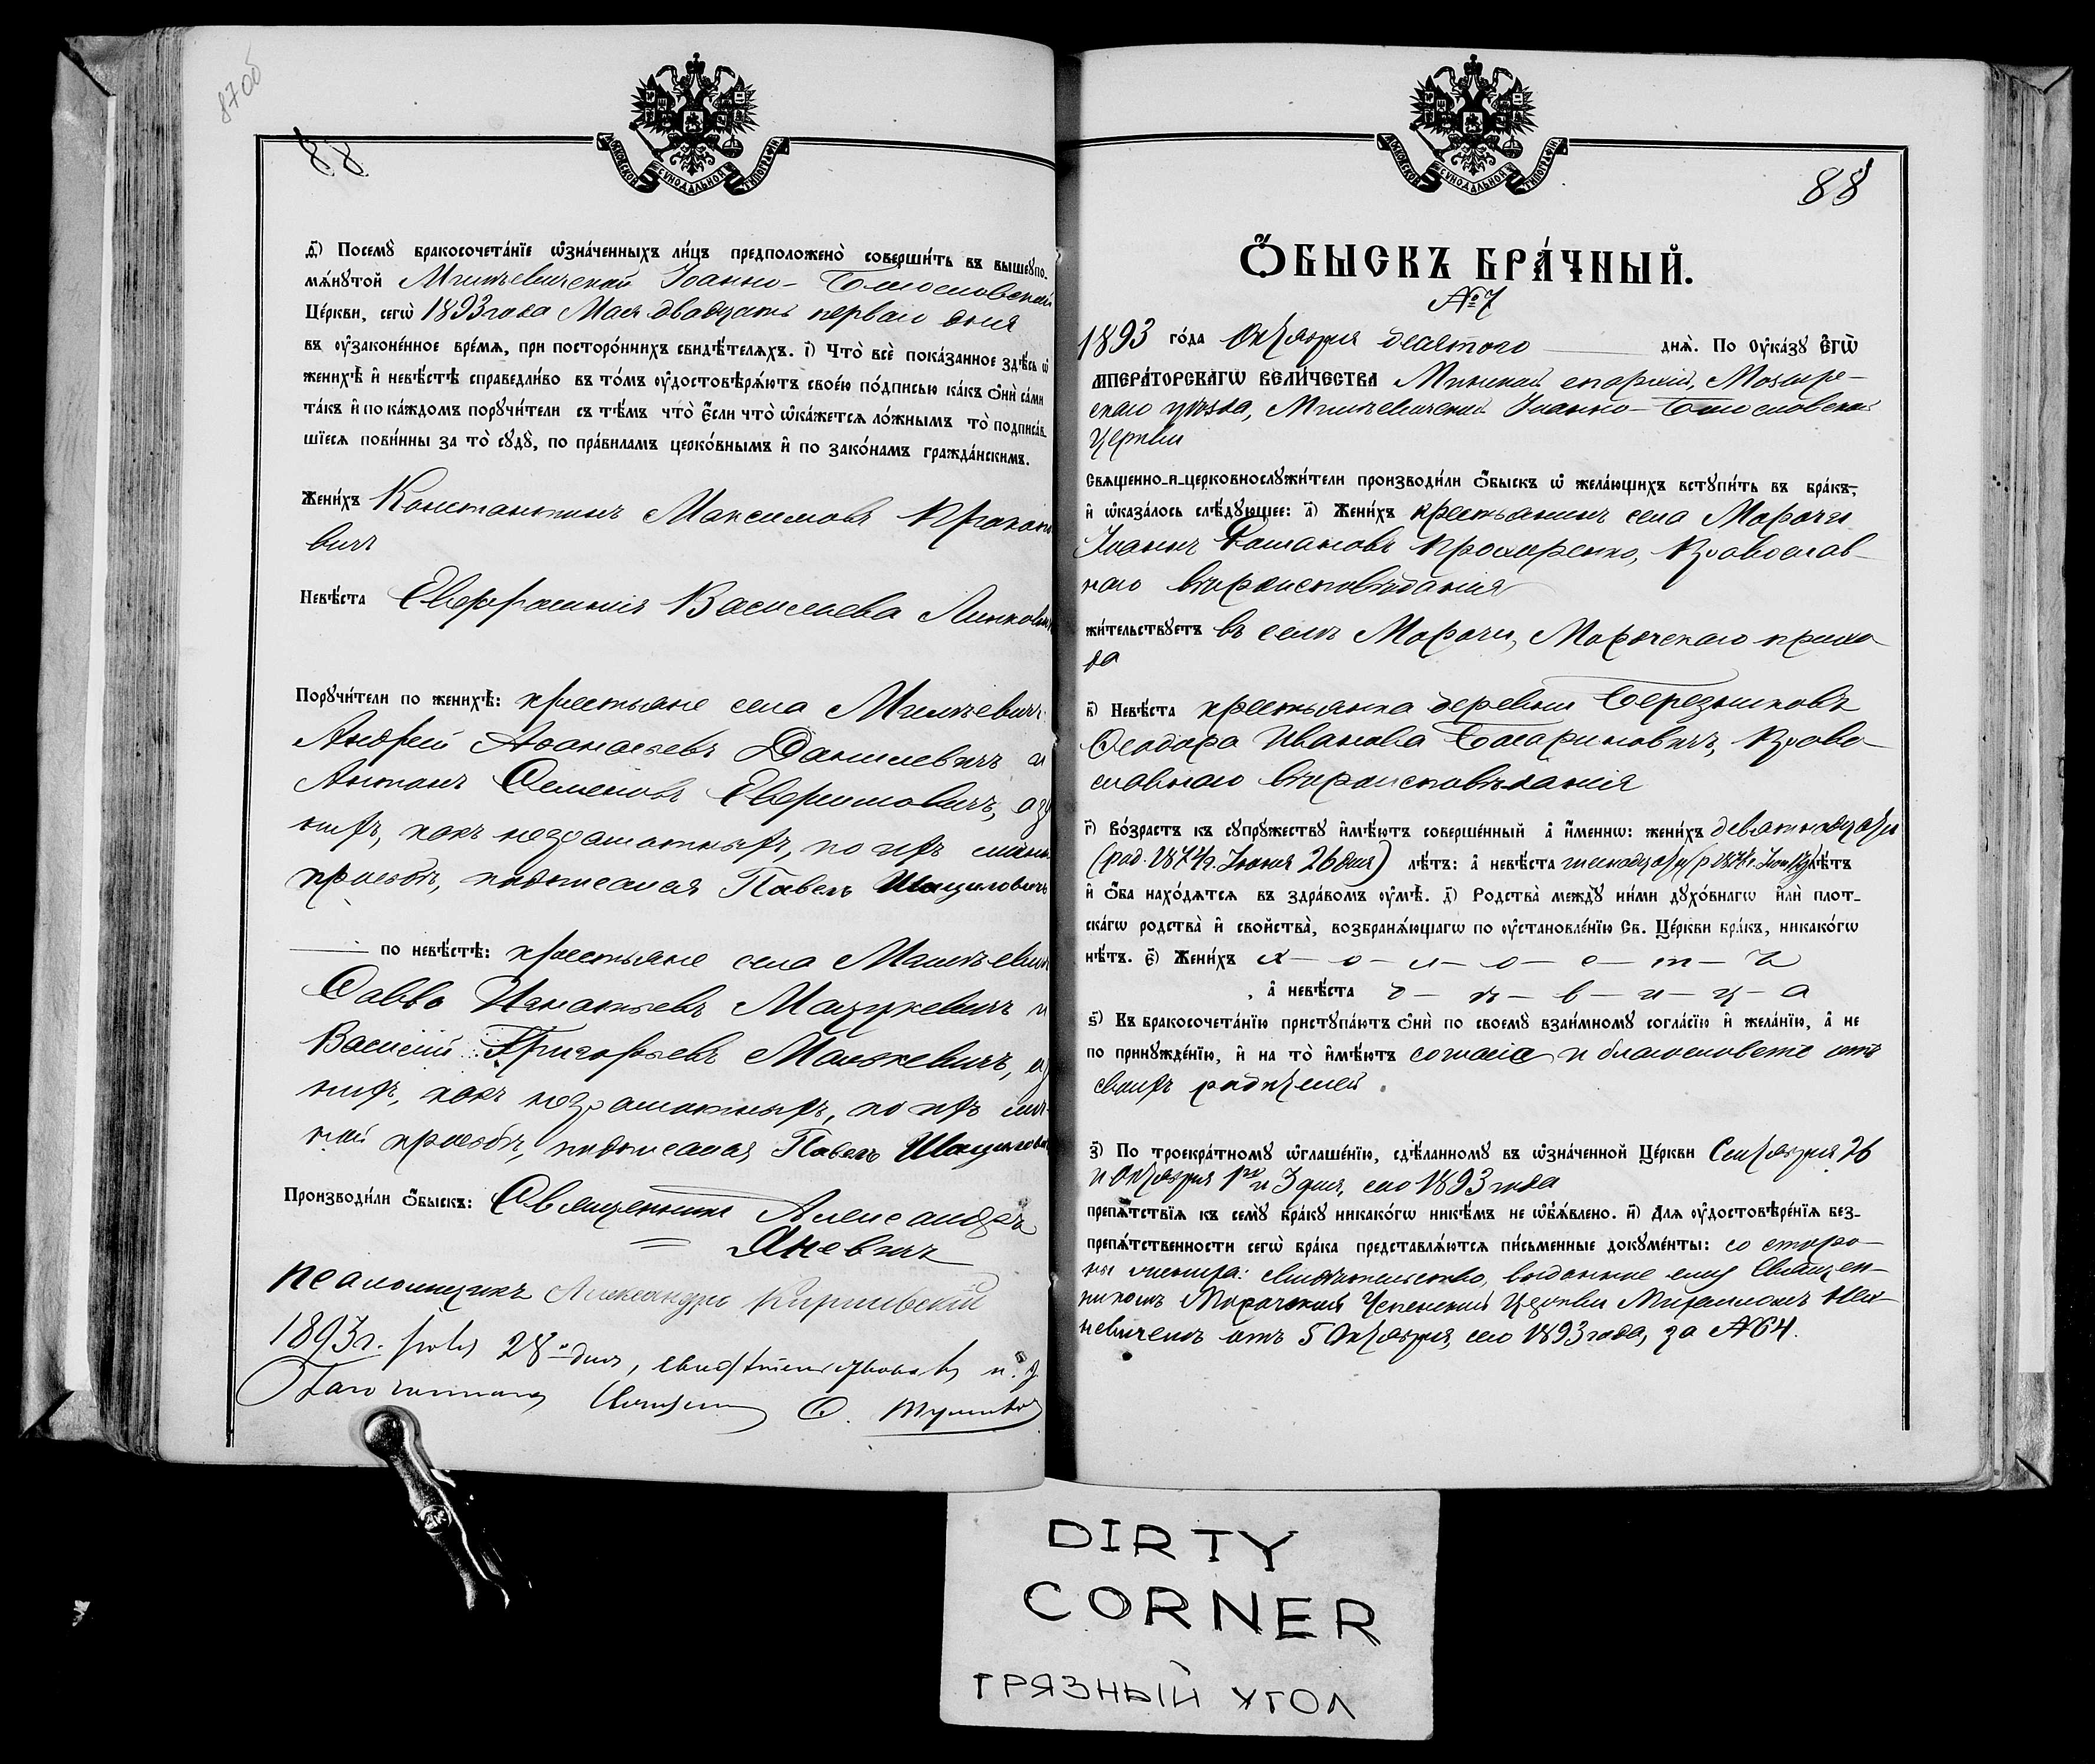 87 об
МОСКОВСКОЙ СѴНОДАЛЬНОЙ ТИПОГРАФІИ
88
д҃) Посемꙋ̀ бракосочета́нїе ѡ҆зна́ченныхъ ли́цъ предположено̀ соверши́ть въ вышеꙋпо-
мѧ́нꙋтой Мильчевичской Іоанно-Богословской
Це́ркви, сегѡ̀ 1893 года Мая двадцать перваго дня
въ ᲂу҆законе́нное вре́мѧ, при посторо́ннихъ свидѣ́телѧхъ. і҃) Что̀ всѐ пока́занное здѣ́сь ѡ҆
женихѣ̀ и҆ невѣ́стѣ справедли́во въ то́мъ ᲂу҆достовѣрѧ́ютъ свое́ю по́дписью ка́къ ѻ҆нѝ са́ми
та́къ и҆ по ка́ждомъ порꙋчи́тели съ тѣ́мъ что̀ є҆́сли что̀ ѡ҆ка́жетсѧ ло́жнымъ то̀ подписа́в-
шїесѧ пови́нны за то̀ сꙋдꙋ̀, по пра́виламъ церко́внымъ и҆ по зако́намъ гражда́нскимъ.
Жени́хъ Константинъ Максимовъ Прокопо
вичъ
Невѣ́ста Евфросинія Васильева Линкович
Порꙋчи́тели по женихѣ̀: крестьяне села Мильчевичъ
Андрей Аѳанасьевъ Данилевичъ и
Антонъ Семеновъ Еверимовичъ, а за
нихъ, какъ неграмотныхъ, по ихъ личн.
просьбѣ, подписался Павелъ Шациловичъ
по невѣ́стѣ: крестьяне села Мильчевич
Савва Игнатьевъ Мацукевичъ и
Василій Григорьевъ Малькевичъ, а за
нихъ, какъ неграмотныхъ, по ихъ лич-
ной просьбѣ, подписался Павелъ Шацилови
Производи́ли ѻ҆́быскъ: Священникъ Александръ
Яневичъ
Псаломщикъ Александръ
1893 г. 28 дня, свидѣтельствовалъ и. д.
Благочиннаго Священникъ
МОСКОВСКОЙ СѴНОДАЛЬНОЙ ТИПОГРАФІИ
88
Ѻ҆́БЫСКЪ БРА́ЧНЫЙ.
№ 7
1893 го́да Октября десятаго днѧ̀. По ᲂу҆ка́зꙋ Є҆гѡ̀
ИМПЕРА́ТОРСКАГѠ ВЕЛИ́ЧЕСТВА Минской епархіи, Мозыр-
скаго уѣзда, Мильчевичской Іоанно-Богословской
Церкви
Свѧщенно-и-церковнослꙋжи́тели производи́ли ѻ҆́быскъ ѡ҆ жела́ющихъ встꙋпи́ть въ бра́къ,
и҆ ѡ҆каза́лось слѣ́дꙋющее: а҃) Жени́хъ крестьянинъ села Морочи
Іоаннъ Романовъ Прохоренко, Православ-
наго вѣроисповѣданія
жи́тельствꙋетъ въ селѣ Морочи, Морочскаго прихо
да
в҃) Невѣ́ста крестьянка деревни Березниковъ
Ѳеодора Иванова Богариновичъ, Право-
славнаго вѣроисповѣданія
г҃) Во́зрастъ къ сꙋпрꙋ́жествꙋ и҆мѣ́ютъ соверше́нный а҆ и҆́меннѡ: жени́хъ девятнадцать
(род. 1874 г. Іюня 26 дня) лѣ́тъ: а҆ невѣ́ста лѣ́тъ
и҆ ѻ҆́ба нахо́дѧтсѧ въ здра́вомъ ᲂу҆мѣ̀. д҃) Родства̀ междꙋ̀ ни́ми дꙋхо́внагѡ и҆лѝ плот-
ска́гѡ родства̀ и҆ сво́йства, возбранѧ́ющагѡ по ᲂу҆становле́нїю Св. Це́ркви бра́къ, никако́гѡ
нѣ́тъ. є҃) Жени́хъ х — о — л — о — с — т — ъ
, а҆ невѣ́ста д — ѣ — в — и — ц — а
ѕ҃) Къ бракосочета́нїю пристꙋпа́ютъ ѻ҆нѝ по своемꙋ̀ взаи́мномꙋ согла́сїю и҆ жела́нїю, а҆ не
по принꙋжде́нїю, и҆ на то̀ и҆мѣ́ютъ согласіе и благословеніе отъ
своихъ родителей.
з҃) По троекра́тномꙋ ѡ҆глаше́нїю, сдѣ́ланномꙋ въ ѡ҆зна́ченной Це́ркви Сентября 26
и Октября 1го и 3 дня, сего 1893 года
препѧ́тствїѧ къ семꙋ̀ бра́кꙋ никако́гѡ никѣ́мъ не ѡ҆б̾ѧ́влено. и҃) Длѧ ᲂу҆достовѣре́нїѧ без-
препѧ́тственности сегѡ̀ бра́ка представлѧ́ютсѧ пи́сьменные докꙋме́нты: со сторо-
ны жениха: свидѣтельство, выданное ему Священ-
никомъ Морочской Успенской Церкви Михаиломъ
невичемъ отъ 5 Октября, сего 1893 года, за № 64.
DIRTY
CORNER
ГРЯЗНЫЙ УГОЛ